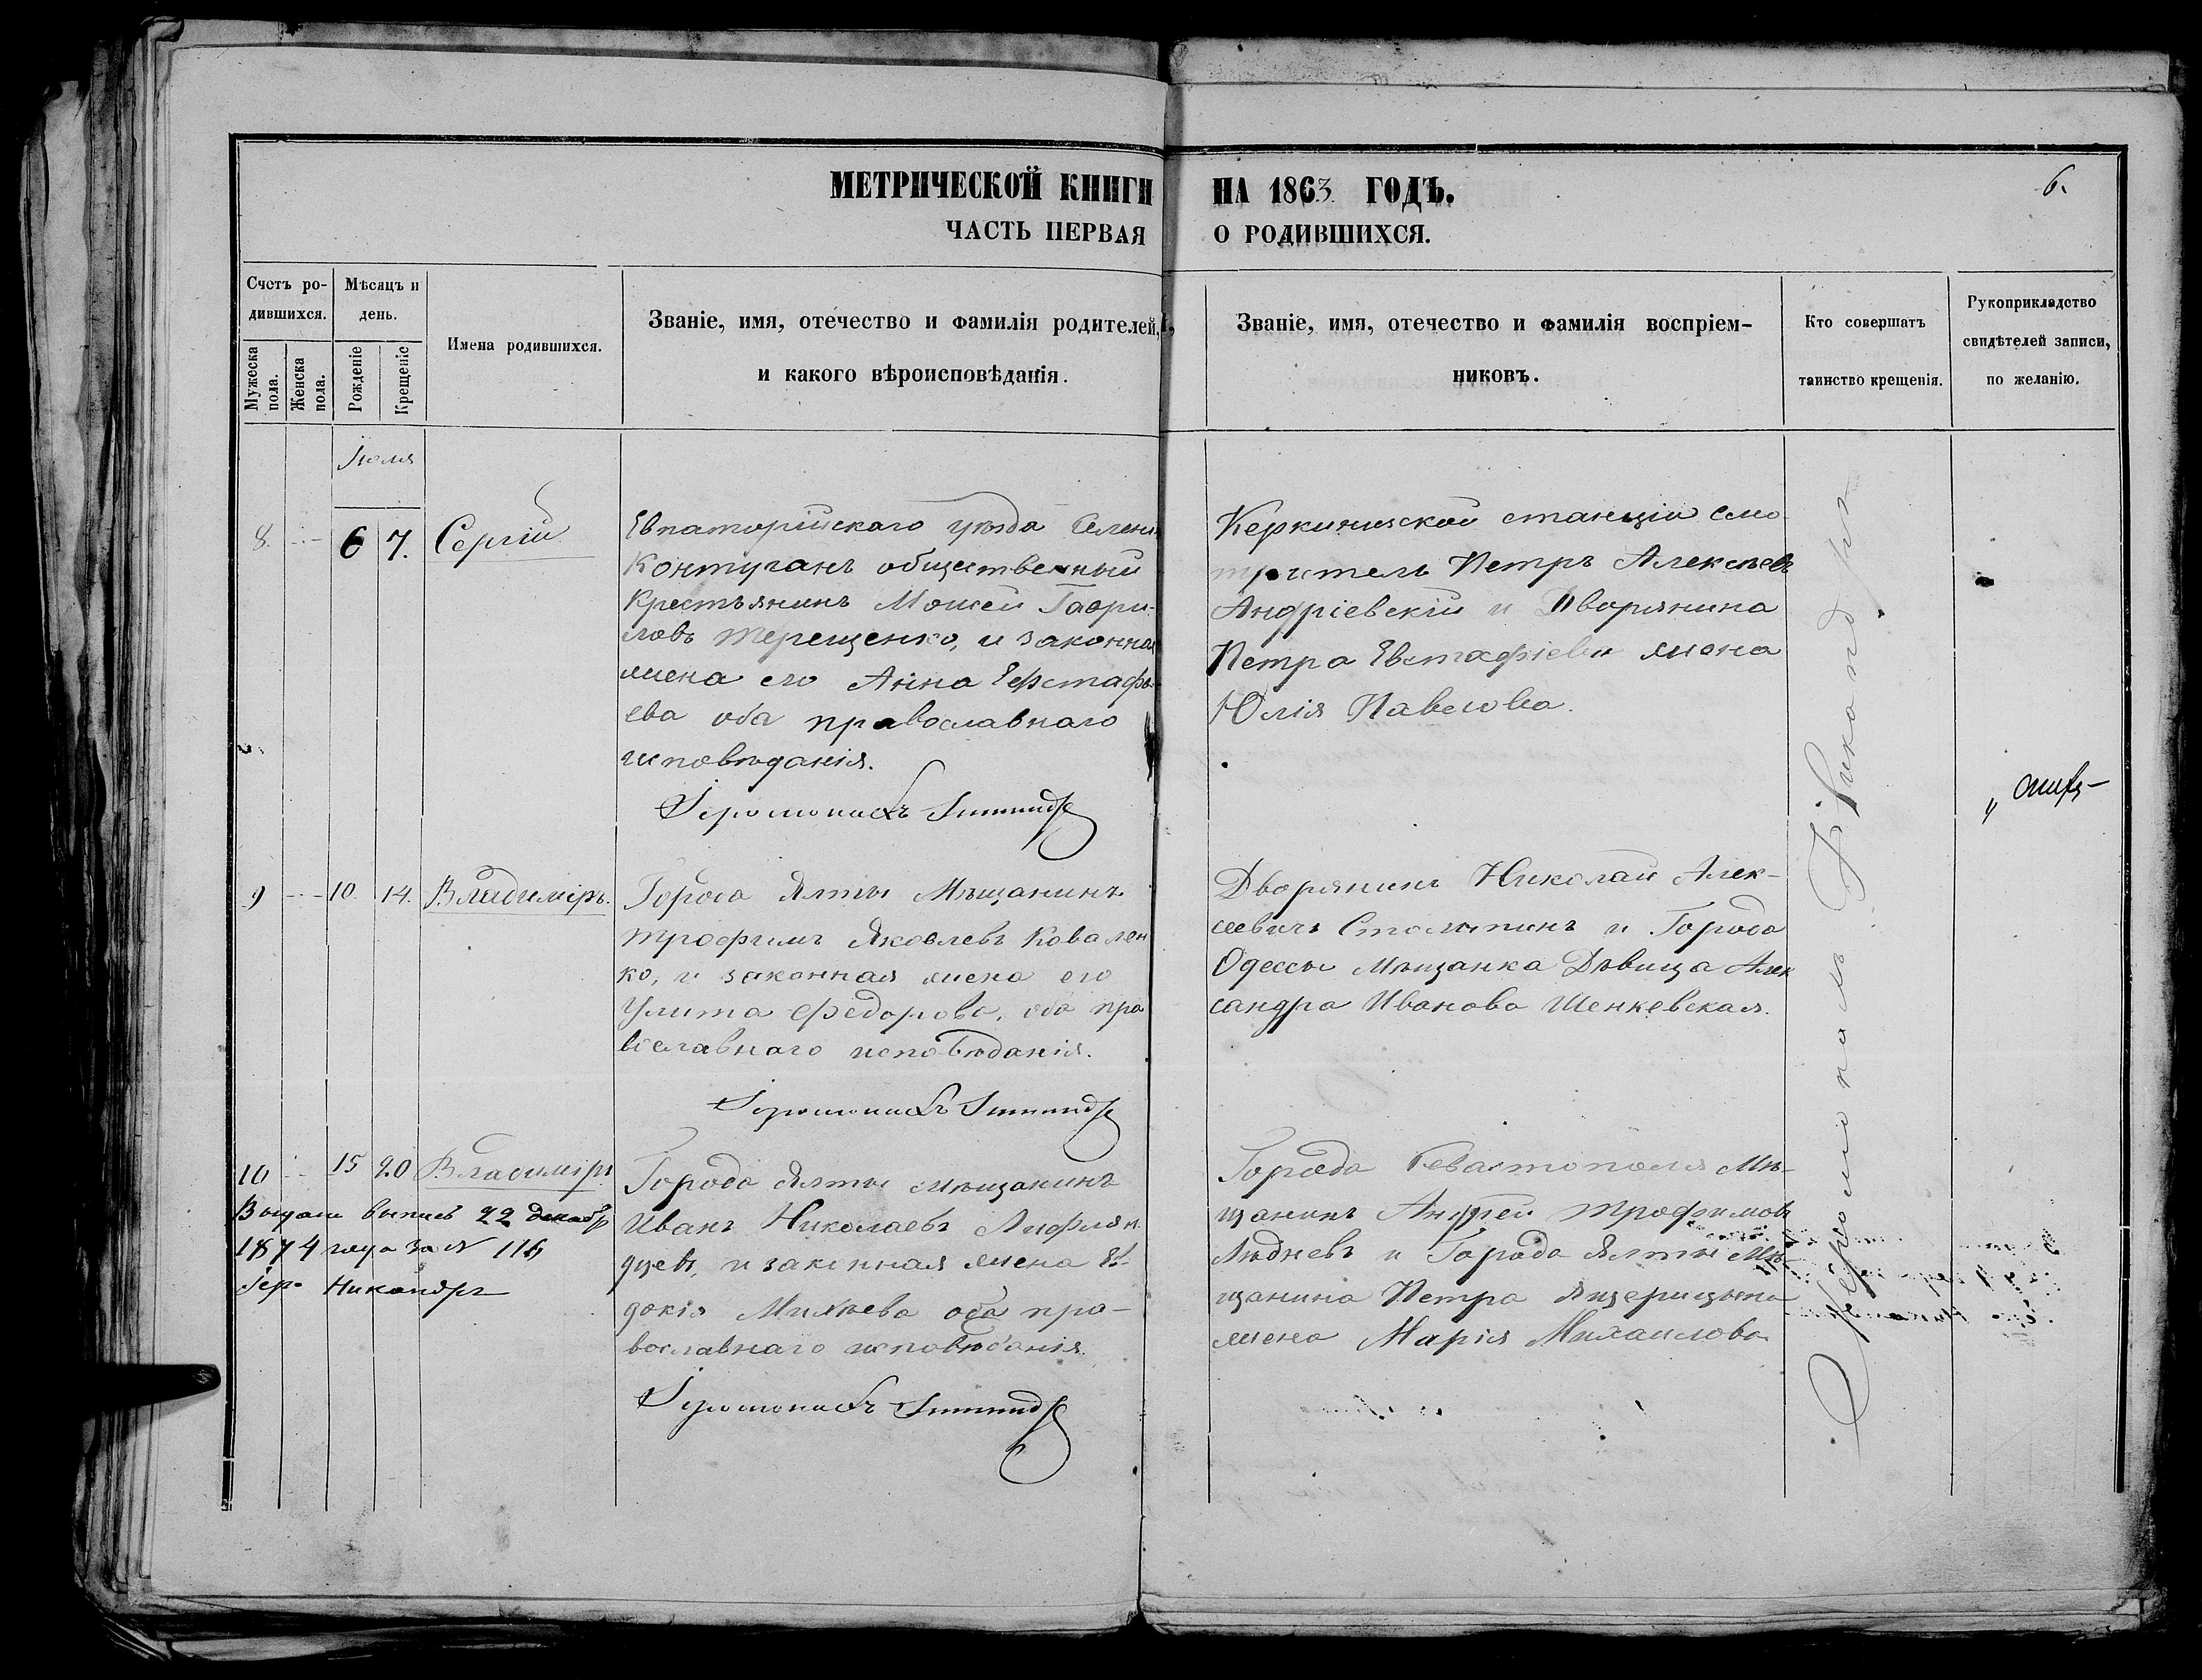 МЕТРИЧЕСКОЙ КНИГИ НА 1863 ГОДЪ.
6.
ЧАСТЬ ПЕРВАЯ О РОДИВШИХСЯ.
Счетъ ро-
дившихся.
Мужеска пола.
Женска пола.
Мѣсяцъ и
день.
Рожденіе
Крещеніе
Имена родившихся.
Званіе, имя, отечество и фамилія родителей,
и какого вѣроисповѣданія.
Званіе, имя, отечество и фамилія воспріем-
никовъ.
Кто совершатъ
таинство крещенія.
Рукоприкладство
свидѣтелей записи,
по желанію.
Іюля
8.
6
7.
Сергій
Евпаторійскаго уѣзда Селени
Контуганъ общественный
Крестьянинъ Моисей Гаври-
ловъ Терещенко, и законная
жена его Анна Ефстафь-
ева оба православнаго
исповѣданія.
Іеромонахъ
Керкинитской станціи смо
тритель Петръ Алексѣевъ
Андріевскій и Дворянина
Петра Евстафіева жена
Юлія Павлова.
9
10.
14.
Владиміръ.
Города Ялты Мѣщанинъ
Трофимъ Яковлевъ Ковален
ко, и законная жена его
Улита Федорова, оба пра
вославнаго исповѣданія.
Іеромонахъ
Дворянинъ Николай Алек-
сеевичъ Столыпинъ и Города
Одессы Мѣщанка Дѣвица Алек
сандра Иванова Шенкевская.
10
15
20
Владиміръ
Выдана выпись 22 декабр
1874 года за N 116
Іер. Никандръ
Города Ялты мѣщанинъ
Иванъ Николаевъ Лифлян
дцевъ, и законная жена Ев-
докія Михѣева оба пра-
вославнаго исповѣданія.
Іеромонахъ
Города Севастополя Мѣ-
щанинъ Андрей Трофимовъ
Людневъ и Города Ялты Мѣ-
щанина Петра Ящерицына
жена Марія Михаилова
Іеромонахъ Никандръ